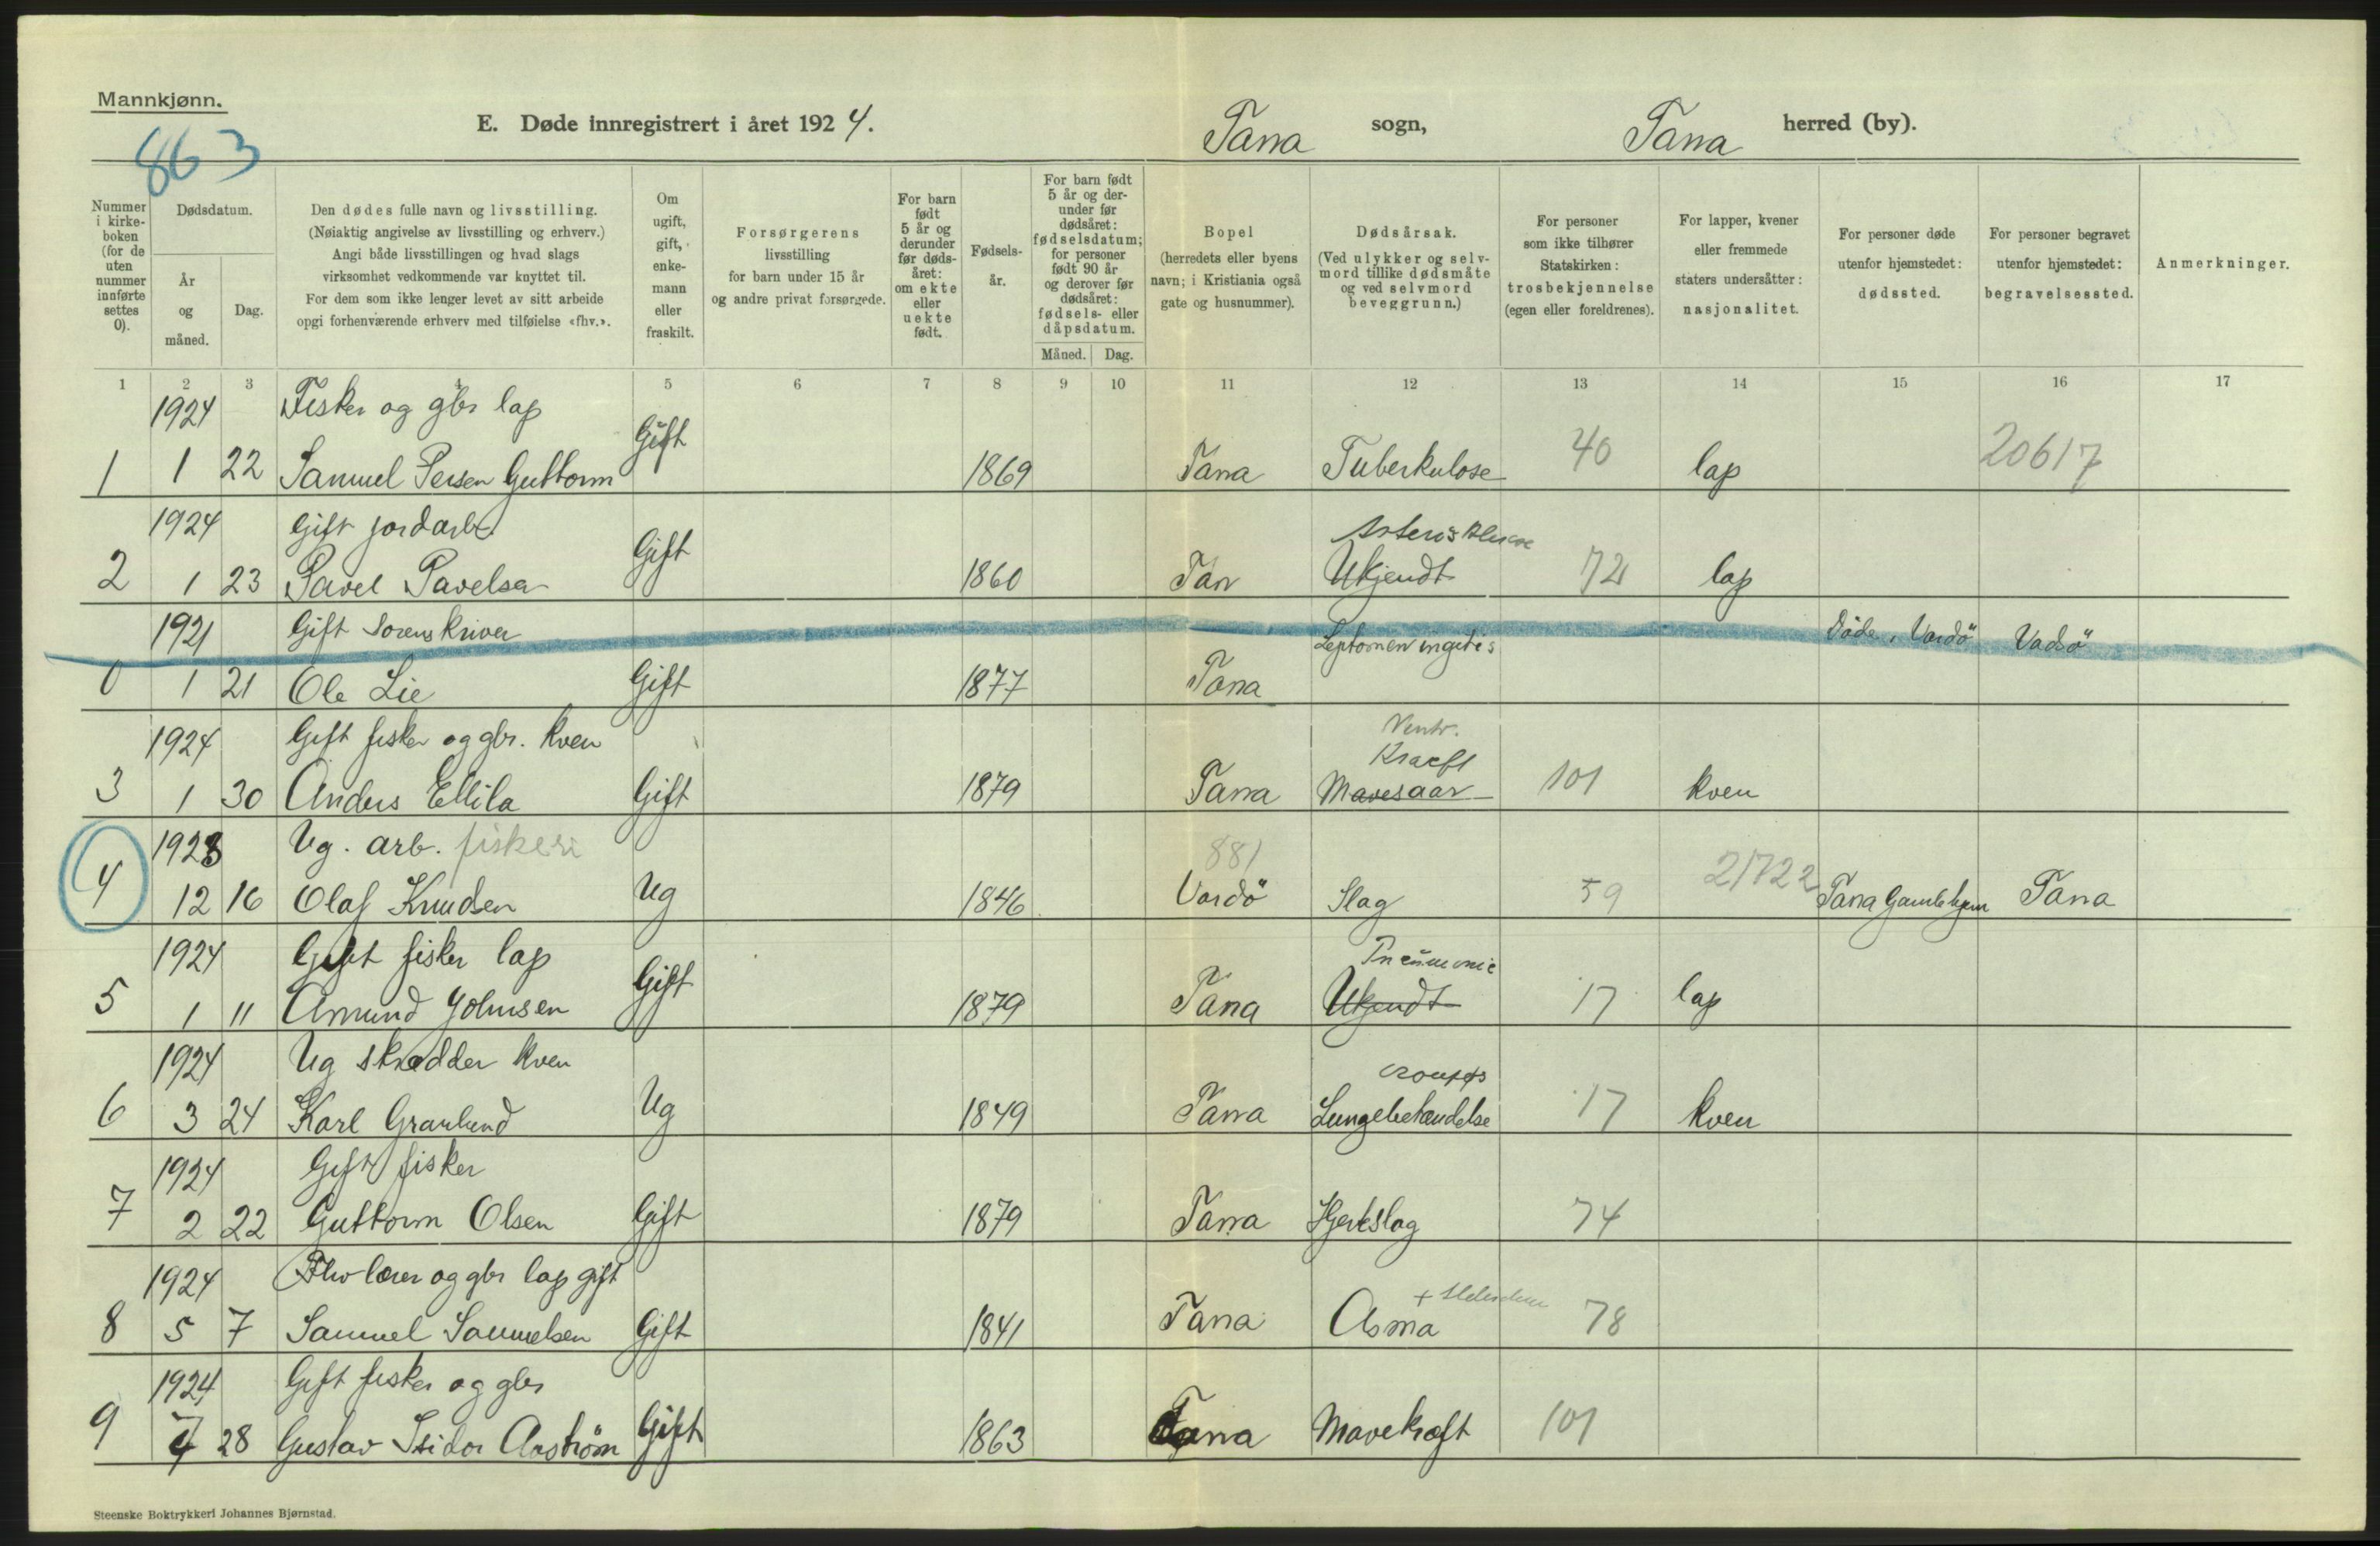 Mannkjønn.
863
E. Døde innregistrert i året 1924.
Tana sogn, Tana herred (by).
Nummer i kirke- boken (for de uten nummer innførte settes 0).
Dødsdatum.
År og måned.
Dag.
Den dødes fulle navn og livsstilling.
(Nøiaktig angivelse av livsstilling og erhverv.)
Angi både livsstillingen og hvad slags
virksomhet vedkommende var knyttet til.
For dem som ikke lenger levet av sitt arbeide
opgi forhenværende erhverv med tilføielse «fhv.».
Om ugift, gift, enke- mann eller fraskilt.
Forsørgerens
livsstilling
for barn under 15 år
og andre privat forsørgede.
For barn født 5 år og derunder før døds- året: om ekte eller uekte født.
Fødsels- år.
For barn født 5 år og der- under før dødsåret: fødselsdatum; for personer født 90 år og derover før dødsåret: fødsels- eller dåpsdatum.
Måned. Dag.
Bopel
(herredets eller byens
navn; i Kristiania også
gate og husnummer).
Dødsårsak.
(Ved ulykker og selv-
mord tillike dødsmåte
og ved selvmord
beveggrunn.)
For personer
som ikke tilhører
Statskirken:
trosbekjennelse
(egen eller foreldrenes).
For lapper, kvener
eller fremmede
staters undersåtter:
nasjonalitet.
For personer døde
utenfor hjemstedet:
dødssted.
For personer begravet
utenfor hjemstedet:
begravelsessted.
Anmerkninger.
1 2 3 4 5 6 7 8 9 10 11 12 13 14 15 16 17
1924 Fisker og gbr lap
1 1 22 Samuel Persen Guttorm Gift 1869 Tana Tuberkulose 40 lap 20617
1924 Gift jordarb.
2 1 23 Pavel Pavelsen Gift 1860 Tan Ukjendt 72 lap
1921 Gift Sorenskriver Leptomeningitis Døde i Vardö Vadsö
0 1 21 Ole Lie Gift 1877 Tana
1924 Gift fisker og gbr. kven Ventr. Kraeft
3 1 30 Anders Ellila Gift 1879 Tana Mavesaar 101 kven
1923 Ug. arb. fiskeri 881 21722
4 12 16 Olaf Knudsen Ug 1846 Vardö Slag 59 Tana Gamlehjem Tana
1924 Gift fisker lap Pneumonie
5 1 11 Amund Johnsen Gift 1879 Tana Ukjendt 17 lap
1924 Ug skrædder kven
6 3 24 Karl Granlund Ug 1849 Tana Lungebetændelse 17 kven
1924 Gift fisker
7 2 22 Guttorm Olsen Gift 1879 Tana Hjerteslag 74
1924 Fhv lærer og gbr lap gift
8 5 7 Samuel Samuelsen Gift 1841 Tana Asma 78
1924 Gift fisker og gbr
9 4 28 Gustav Isidor Aström Gift 1863 Tana Mavekræft 101
Steenske Boktrykkeri Johannes Bjørnstad.